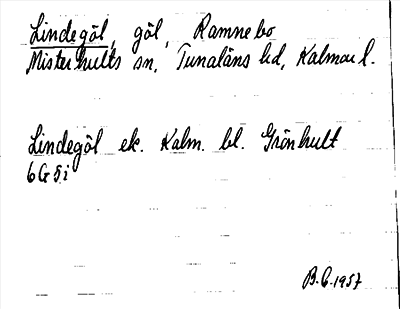 Lindegöl, göl, Ramnebo
Misterhults sn, Tunaläns hd, Kalmar l.
Lindegöl ek. Kalm. bl. Grönhult
6G5i
B.E. 1957